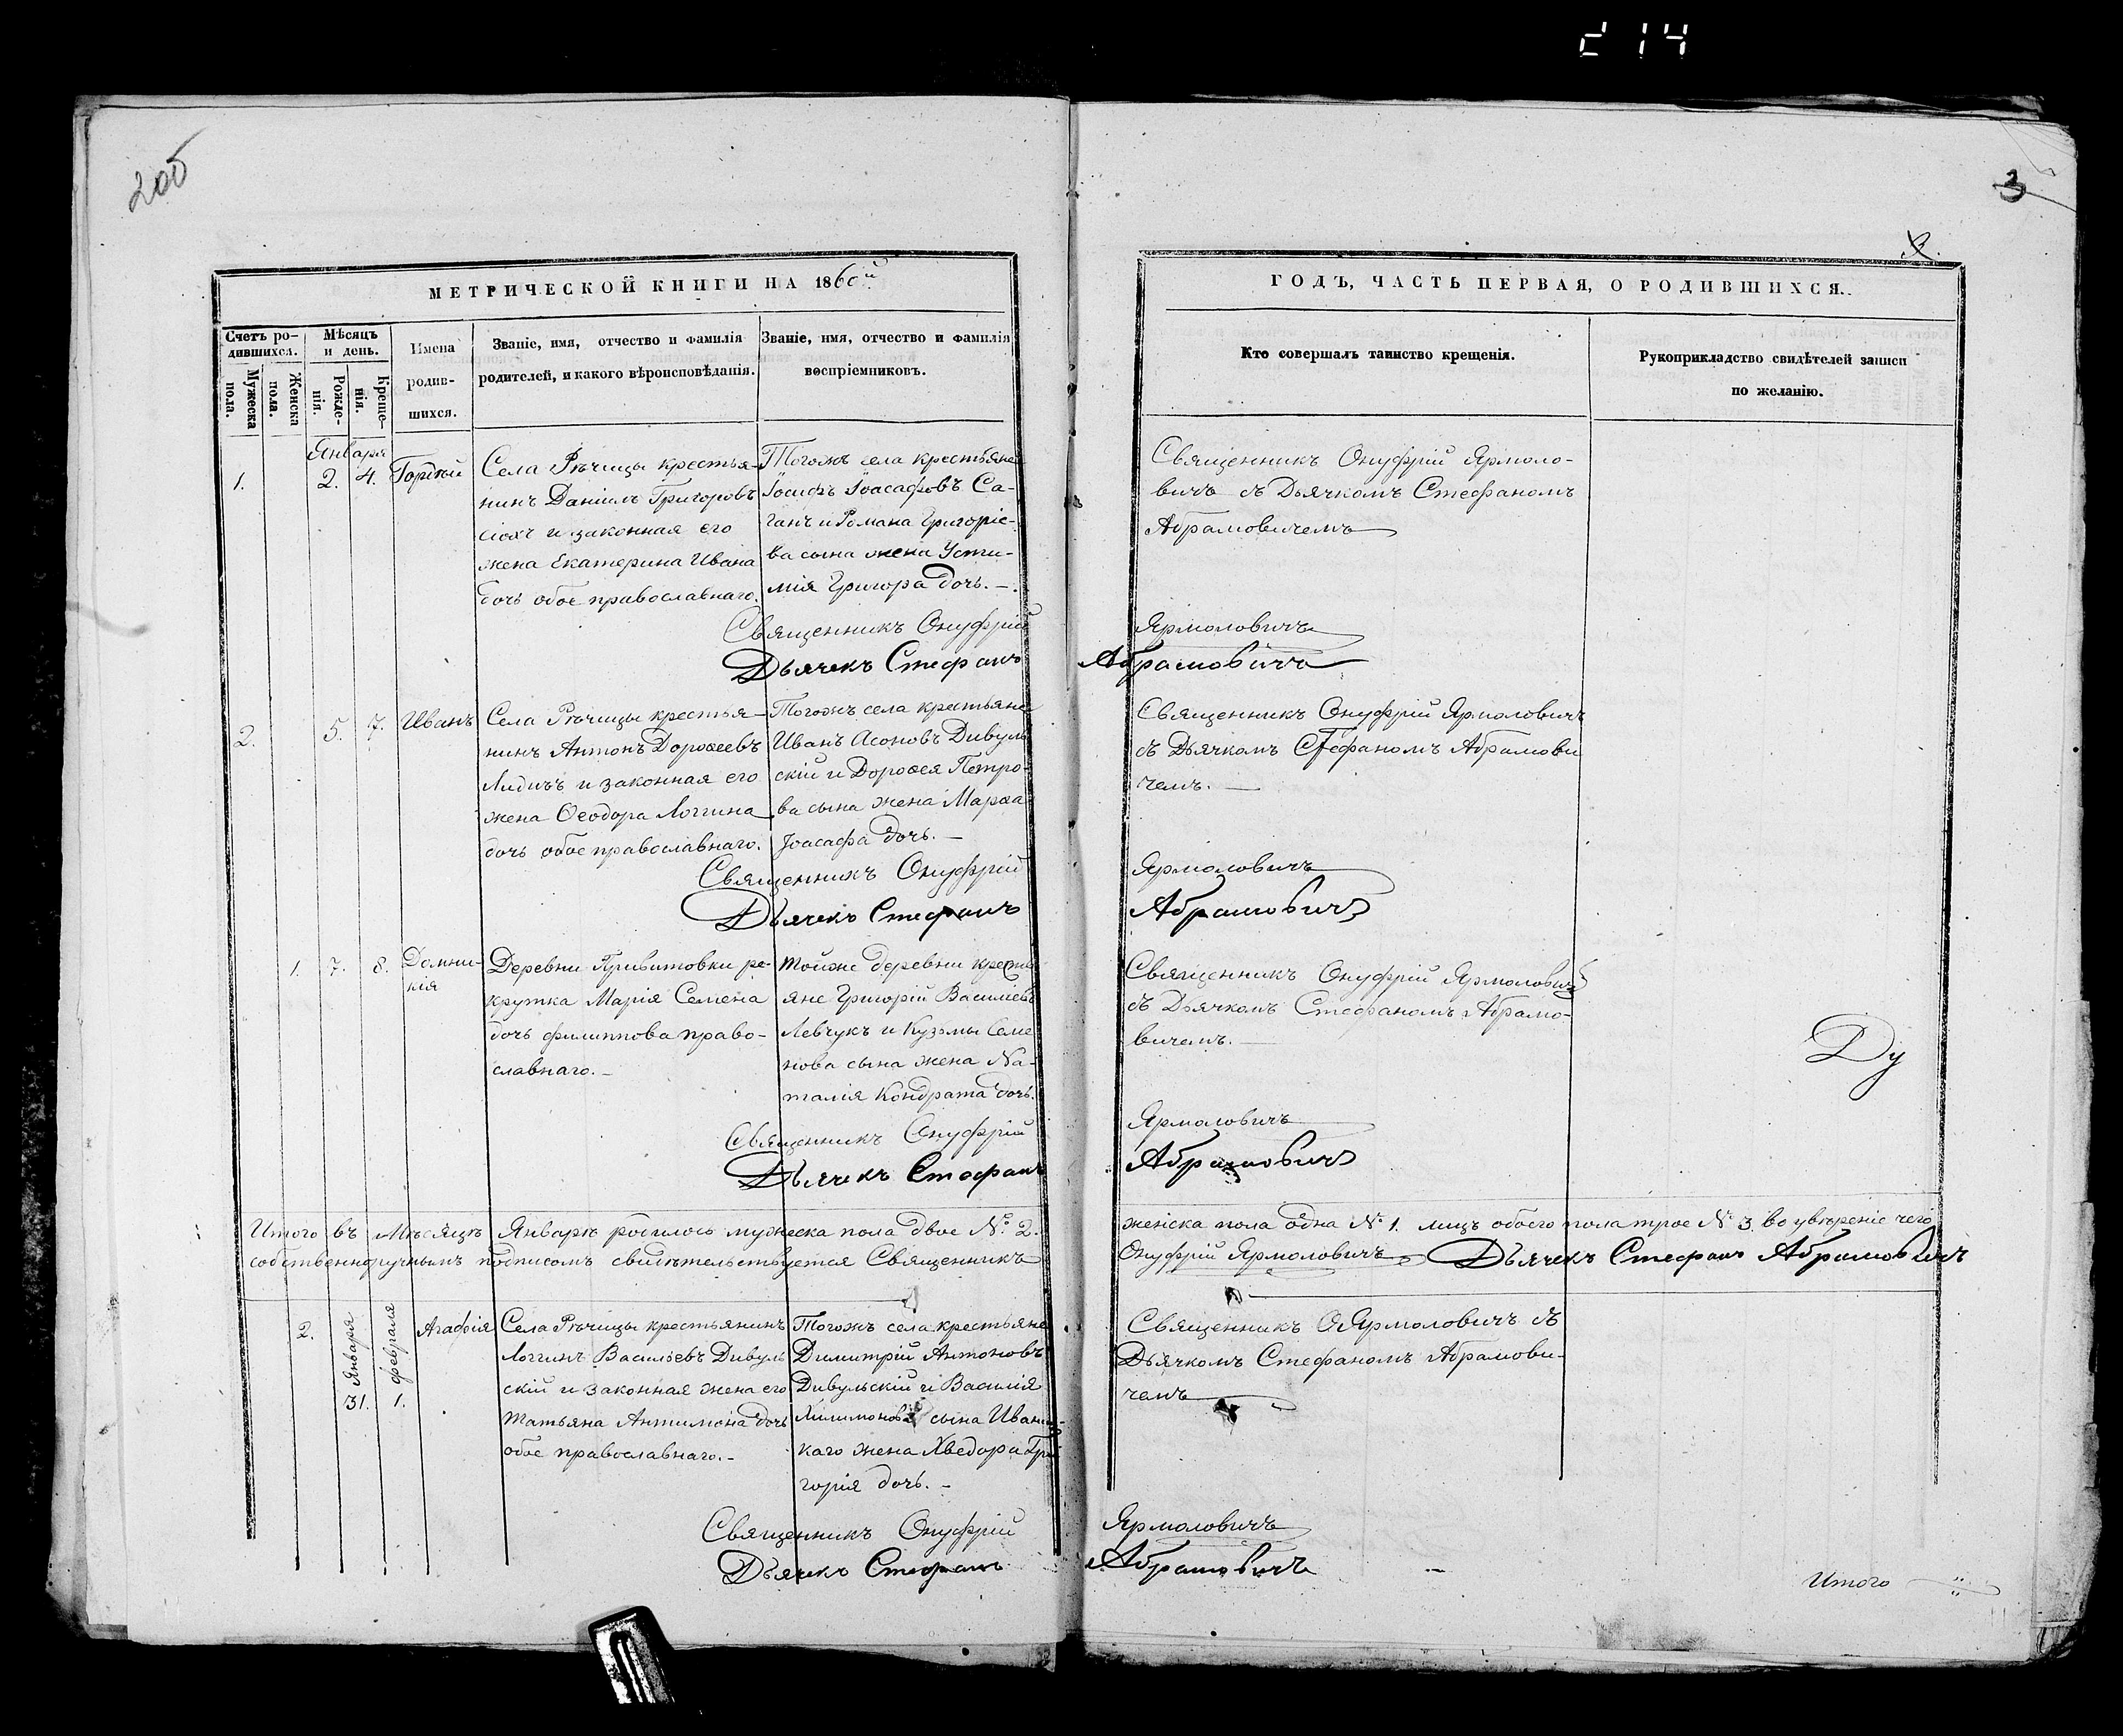 214
2об
3
3.
МЕТРИЧЕСКОЙ КНИГИ НА 1860й
Счетъ ро-
дившихся.
Мужеска
пола.
Женска
пола.
Мѣсяцъ
и день.
Рожде-
нія.
Креще-
нія.
Имена
родив-
шихся.
Званіе, имя, отчество и фамилія
родителей, и какого вѣроисповѣданія.
Званіе, имя, отчество и фамилія
воспріемниковъ.
ГОДЪ, ЧАСТЬ ПЕРВАЯ, О РОДИВШИХСЯ.
Кто совершалъ таинство крещенія.
Рукоприкладство свидѣтелей записи
по желанію.
Января
1. 2. 4. Гордѣй
Села Рѣчицы крестья-
нинъ Даніилъ Григоровъ
и законная его
жена Екатерина Ивана
дочь обое православнаго.
Тогожъ села крестьяне
Іосифъ Іоасафовъ Са-
ганъ и Романа Григоріе-
ва сына жена Усти-
мія Григора дочь. —
Священникъ Онуфрій Ярмоло-
вичъ съ Дьячкомъ Стефаномъ
Абрамовичемъ
Священникъ Онуфрій Ярмоловичъ
Дьячекъ Стефанъ Абрамовичъ
2. 5. 7. Иванъ
Села Рѣчицы крестья-
нинъ Антонъ Дороѳеевъ
Лидичъ и законная его
жена Ѳеодора Логгина
дочь обое православнаго.
Тогожъ села крестьяне
Иванъ Асоновъ Дивуль
скій и Дороѳея Петро-
ва сына жена Марѳа
Іоасафа дочь. —
Священникъ Онуфрій Ярмоловичъ
съ Дьячкомъ Стефаномъ Абрамови
чемъ. —
Священникъ Онуфрій Ярмоловичъ
Дьячекъ Стефанъ Абрамовичъ
1. 7. 8. Домни-
кія
Деревни Привитовки ре-
крутка Марія Семена
дочь Филиппова право-
славнаго. —
Тойже деревни кресть
яне Григорій Василіевъ
Левчукъ и Кузьмы Семе
нова сына жена На-
талія Кондрата дочь.
Священникъ Онуфрій Ярмоловичъ
съ Дьячкомъ Стефаномъ Абрамо-
вичемъ. —
Ду
Священникъ Онуфрій Ярмоловичъ
Дьячекъ Стефанъ Абрамовичъ
Итого въ Мѣсяцѣ Январѣ родилось мужеска пола двое № 2. женска пола одна № 1. лицъ обоего пола трое № 3. во увѣреніе чего
собственноручнымъ подписомъ свидѣтельствуется Священникъ Онуфрій Ярмоловичъ Дьячекъ Стефанъ Абрамовичъ
2. Января 31. февраля 1. Агафія
Села Рѣчицы крестьянинъ
Логгинъ Васильевъ Дивуль
скій и законная жена его
Татьяна Антимона дочь
обое православнаго. —
Тогожъ села крестьяне
Димитрій Антоновъ
Дивульскій и Василія
сына
каго жена Хведора Гри
горія дочь. —
Священникъ О. Ярмоловичъ съ
Дьячкомъ Стефаномъ Абрамови-
чемъ
Священникъ Онуфрій Ярмоловичъ
Дьячекъ Стефанъ Абрамовичъ
Итого